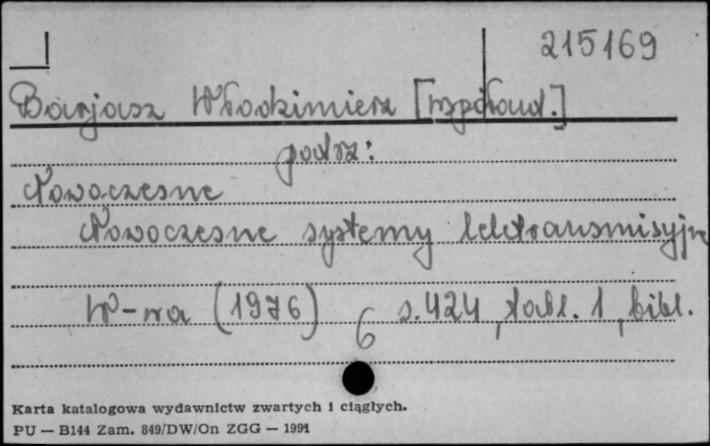 215169
Barjasz Włodzimierz [współaut.]
podrz:
Nowoczesne
Nowoczesne systemy teletransmisyjne
W-wa (1976) s. 424, tabl. 1, bibl.
6
Karta katalogowa wydawnictw zwartych i ciągłych.
PU — B144 Zam. 849/DW/On ZGG — 1991